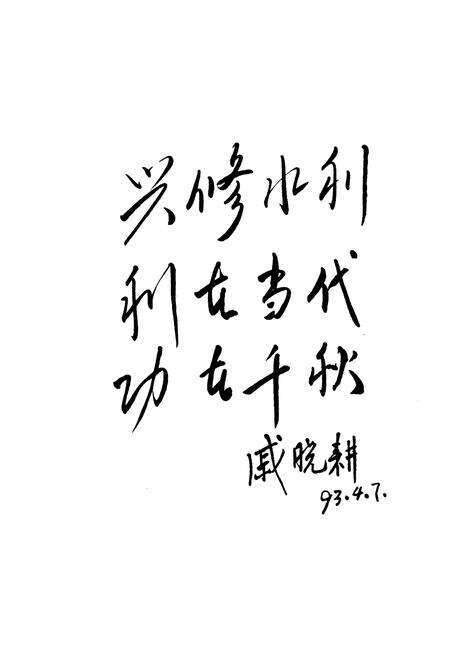 兴修水利
利在当代
功在千秋
戚晥耕
93.4.7.